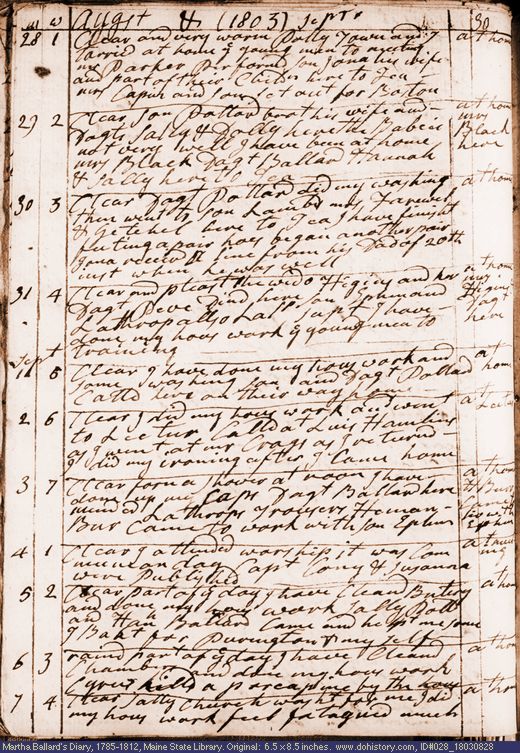 m w Augst & (1803) Sept 30
28 1 Clear and very warm Polly Town and I at home
tarried at home y young men to meeting
mr Parker Performed son Jona his wife
and part of their Childn here to Tea
mrs Capin and son set out for Boston
29 2 Clear, son Pollard boat his wife and at home
Dagts Sally & Dolly here the Babe is mrs
not very well I have been at home Black
mrs Black Dagt Ballard Hannah here
& Sally here to Tea
30 3 Clear Dagt Pollard did my washing at home
then went to son Lambds mrs Farewell
& Getchel here to Tea I have finisht
puting a pair hoes began another pair
Jona receivd a line from his Dad of 20th
inst when he was well
31 4 Clear and pleast the wido Higins and her at home
Dagt here Dind here son Ephraim mrs Higins
Lathrop allso Last Supt I have Dagt
done my hous work y young men to here
training
Sept
1 5 Clear I have done my hous work and at
some washing son and Dagt Pollard home
Calld here on their way home
2 6 Clear I did my hous work and went at
to Lectur Calld at Luis Hamlins
as I went at mr Crags as I returnd
I did my ironing after I Came home
3 7 Clear forn a shover at noon I have at home
done up my Caps Dagt Ballard here
mended Lathrops Trowsers Heman
Bur Came to work with son Ephm
4 1 Clear I attended worship it was Com at meeting
munion day Capt Cony & Susanna
were Publisht
5 2 Clear part of y day I have Cleand Butery at home
and done my hous work Sally Poll
and Hanh Ballard Came and helpt me some
I Bakt for Purington & my self
6 3 raind Part of y day I have Cleand at home
Chambers and done my hous work
Cyrus killd a
7 4 Clear Sally Church washt for me I did at home
my hous work feel fatagued much
Martha Ballard's Diary, 1785-1812, Maine State Library. Original: 6.5 x 8.5 inches. www.dohistory.com, ID#028_18030828